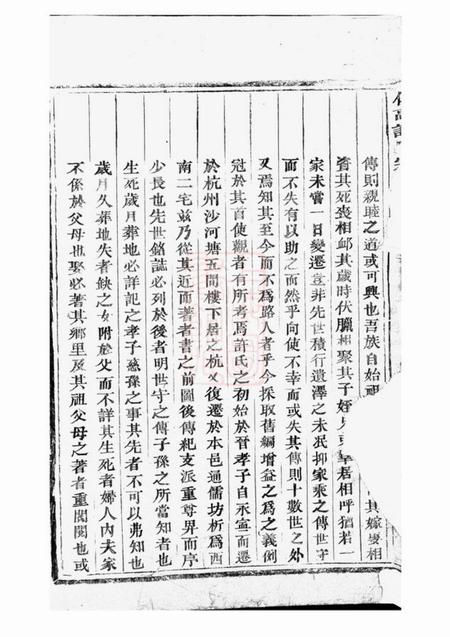 傳則親睦之道或可興也吾族自始祖
其嫁娶相
賫其死喪相邮其歲時伏臘相聚其子姪兄或羣居相呼猶若一
家未嘗一日變遷豈非先世積行遺澤之未泯抑家乘之傳世守
而不失有以助之而然乎向使不幸而或失其傳則十數世之外
又焉知其至今而不爲路人者乎今採取舊編增益之爲之義例
冠於其首使觀者有所考焉許氏之初始於晉孝子自永宣而遷
於杭州沙河塘五間樓下居之杭又復遷於本邑通儒坊析爲西
南二宅並乃從其近而著者書之前圖後傳紀支派重尊畀而序
少長也先世銘誌必列於後者明世守之傳子孫之所當知者也
生死歲月葬地必詳記之孝子慈孫之事其先者不可以弗知也
歲月久葬地失者缺之女附於父而不詳其生死者婦人内夫家
不係於父母也娶必著其鄉里及其祖父母之著者重閥閱也或